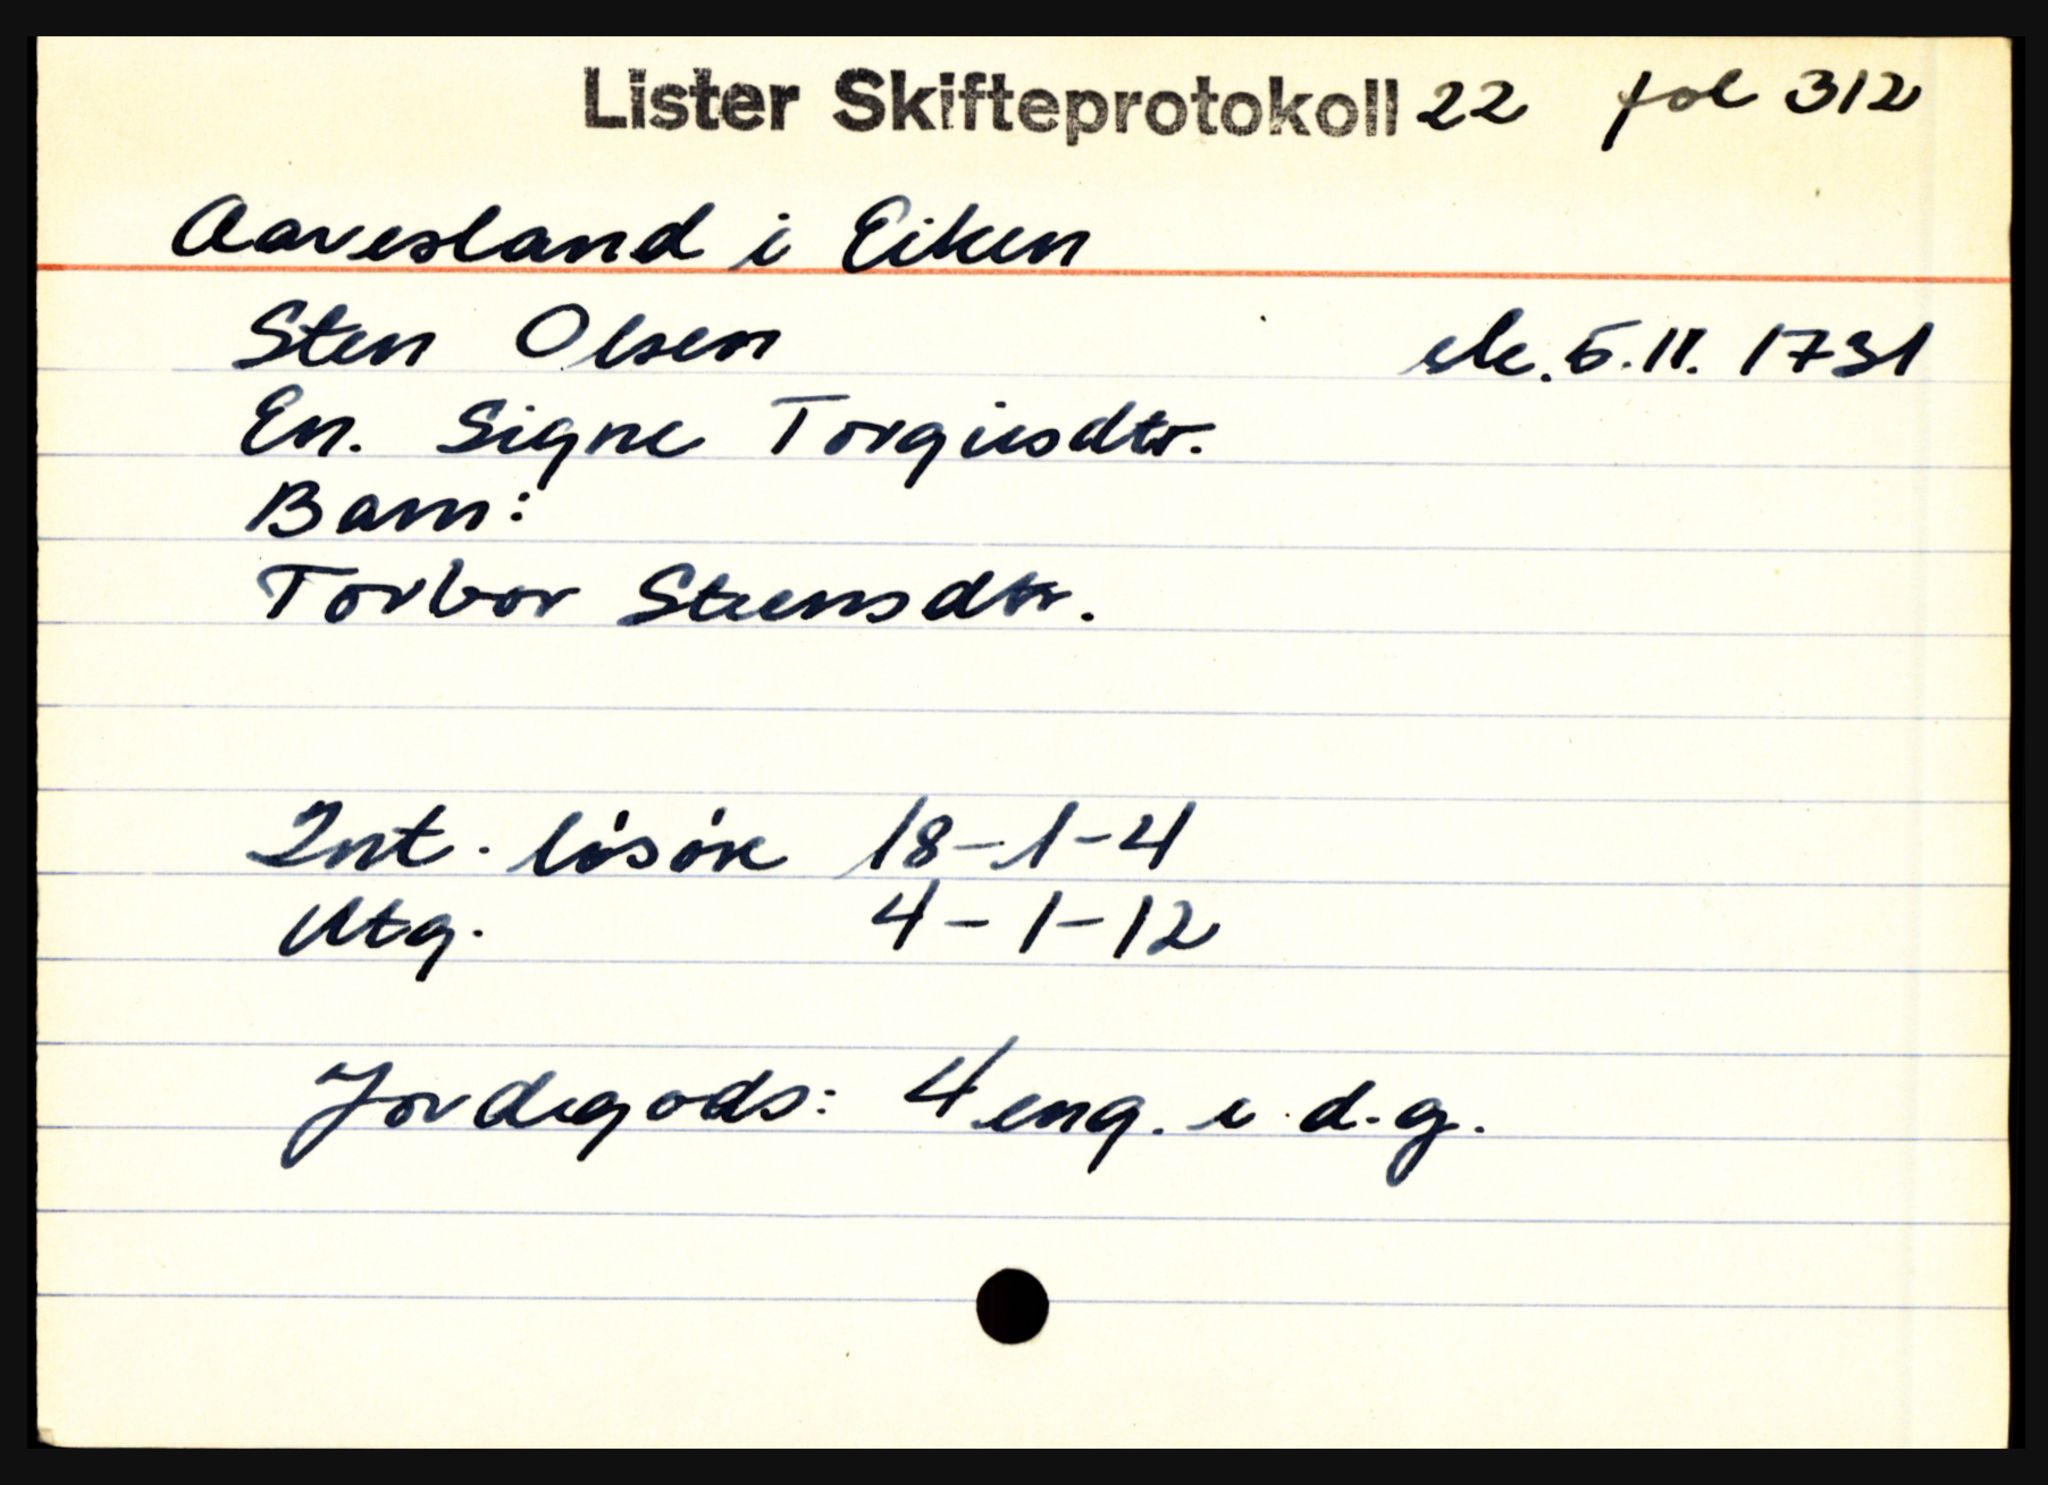 Lister Skifteprotokoll 22 fol 312
Aavesland i Eiken
Sten Olsen sk. 5.11.1731
En. Signe Torgiesdtr.
Barn:
Torbor Steensdtr.
Int. løsøre 18-1-4
Utg. 4-1-12
Jordegods: 4 eng. i d.g.